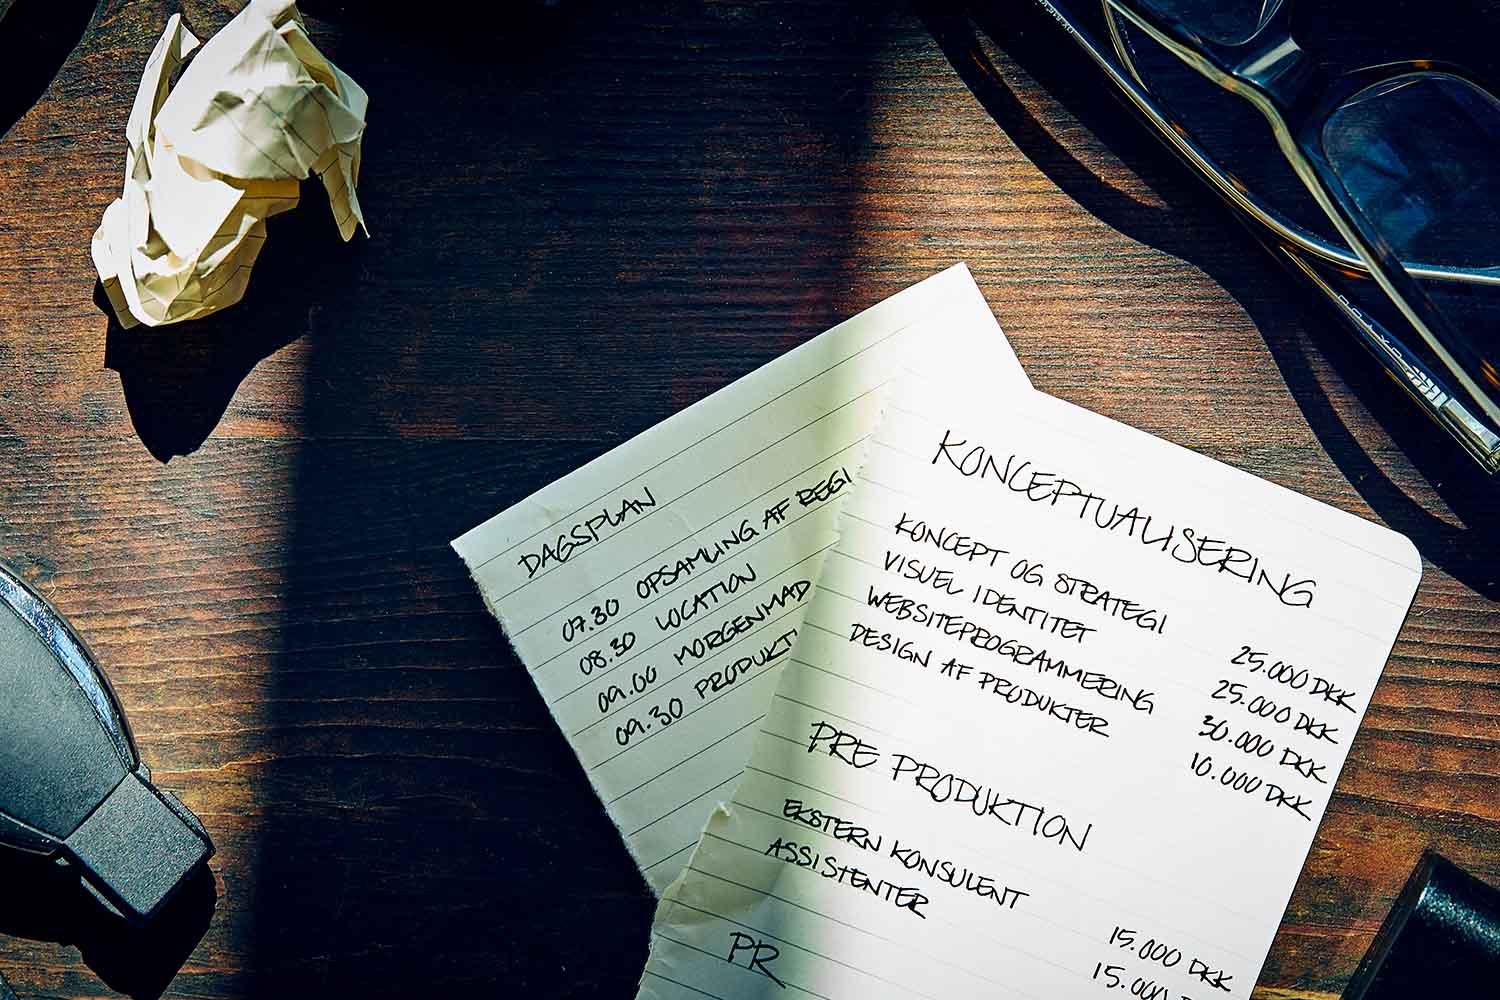 DAGSPLAN
07.30 OPSAMLING AF REGI
08.30 LOCATION
09.00 MORGENMAD
09.30 PRODUKTI
KONCEPTUALISERING
KONCEPT OG STRATEGI 25.000 DKK
VISUEL IDENTITET 25.000 DKK
WEBSITEPROGRAMMERING 30.000 DKK
DESIGN AF PRODUKTER 10.000 DKK
PRE PRODUKTION
EKSTERN KONSULENT 15.000 DKK
ASSISTENTER 15.000
PR